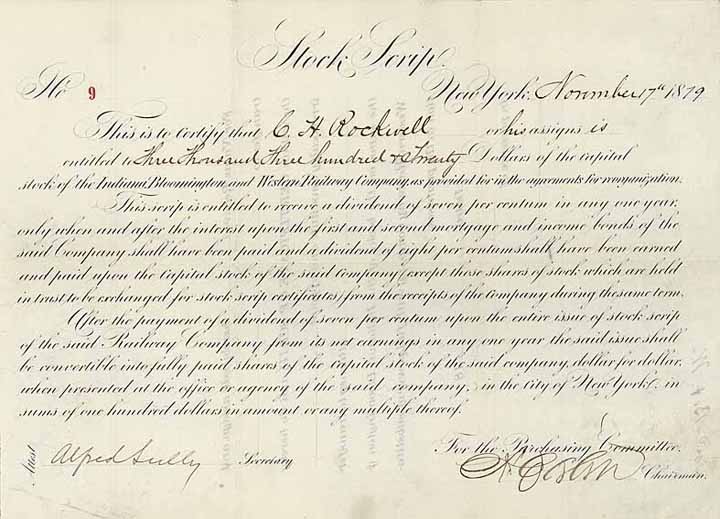 Stock Scrip.
No 9
New York, November 17th 1879
This is to certify that C. H. Rockwell or his assigns is
entitled to Three Thousand Three hundred & Twenty Dollars of the Capital
stock of the Indiana, Bloomington and Western Railway Company, as provided for in the agreements for reorganization.
This scrip is entitled to receive a dividend of seven per centum in any one year,
only when and after the interest upon the first and second mortgage and income bonds of the
said Company shall have been paid and a dividend of eight per centum shall have been earned
and paid upon the Capital stock of the said Company (except those shares of stock which are held
in trust to be exchanged for stock scrip certificates) from the receipts of the Company during the same term.
After the payment of a dividend of seven per centum upon the entire issue of stock scrip
of the said Railway Company from its net earnings in any one year the said issue shall
be convertible into fully paid shares of the Capital stock of the said company, dollar for dollar,
when presented at the office or agency of the said company, in the City of New York, in
sums of one hundred dollars in amount or any multiple thereof.
Attest
Alfred Sully Secretary
For the Purchasing Committee.
Chairman.